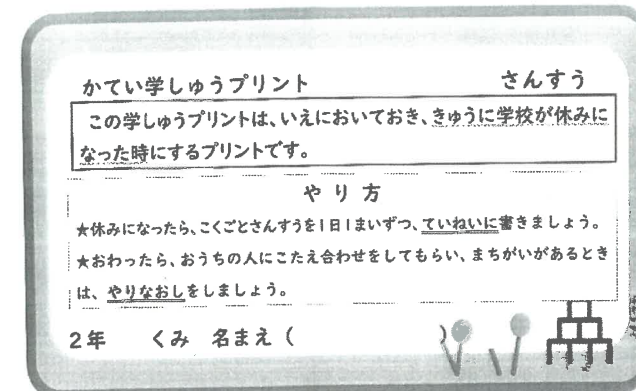 かてい学しゅうプリント　さんすう
この学しゅうプリントは、いえにおいておき、きゅうに学校が休みに
なった時にするプリントです。
やり方
★休みになったら、こくごとさんすうを1日1まいずつ、ていねいに書きましょう。
★おわったら、おうちの人にこたえ合わせをしてもらい、まちがいがあるとき
は、やりなおしをしましょう。
2年　くみ　名まえ（　）